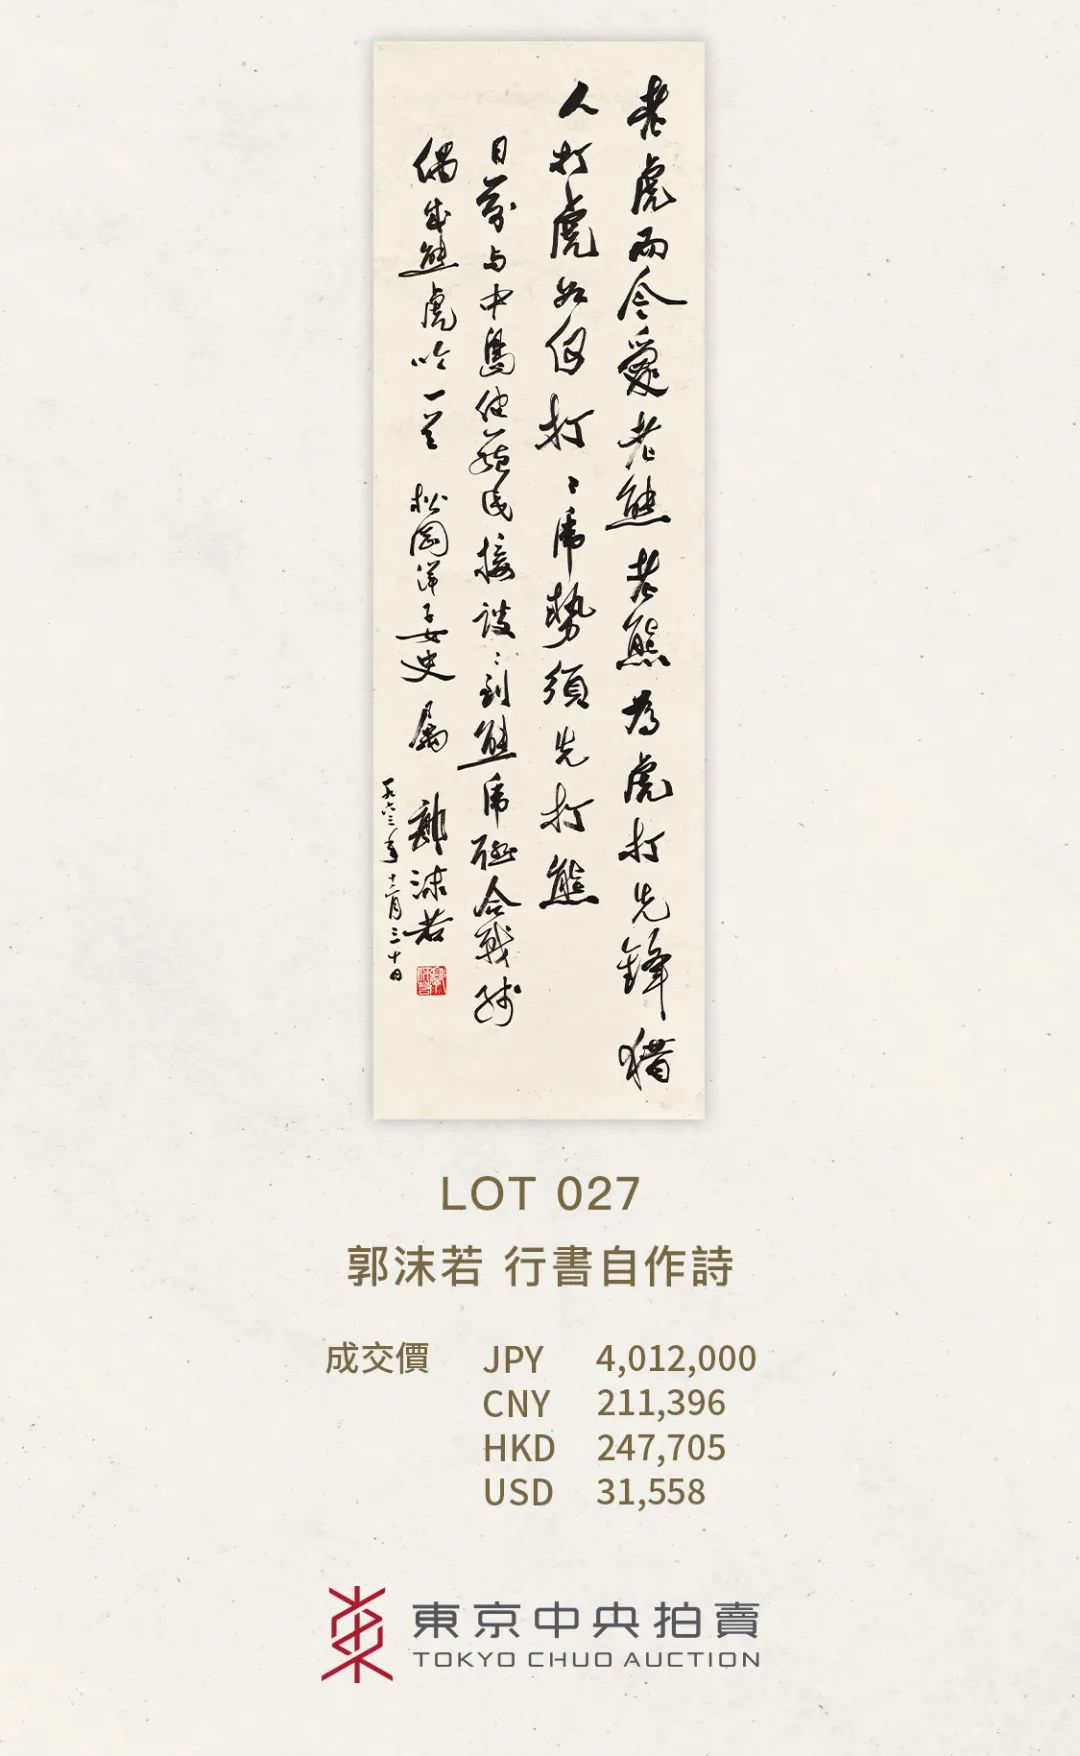 老虎而今愛老熊老熊為虎打先鋒獵
人打虎如何打打虎勢須先打熊
日前与中島健藏氏接談談到熊虎聯合戰線
偶成熊虎吟一首 松岡洋子女史 屬 郭沫若
一九六三年十二月三十日
LOT 027
郭沫若 行書自作詩
成交價 JPY 4,012,000
CNY 211,396
HKD 247,705
USD 31,558
東京中央拍賣
TOKYO CHUO AUCTION